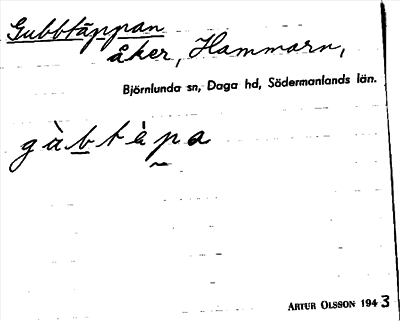 Gubbtäppan
åker, Hammarn,
Björnlunda sn, Daga hd, Södermanlands län.
gàbtàpa
ARTUR OLSSON 1943